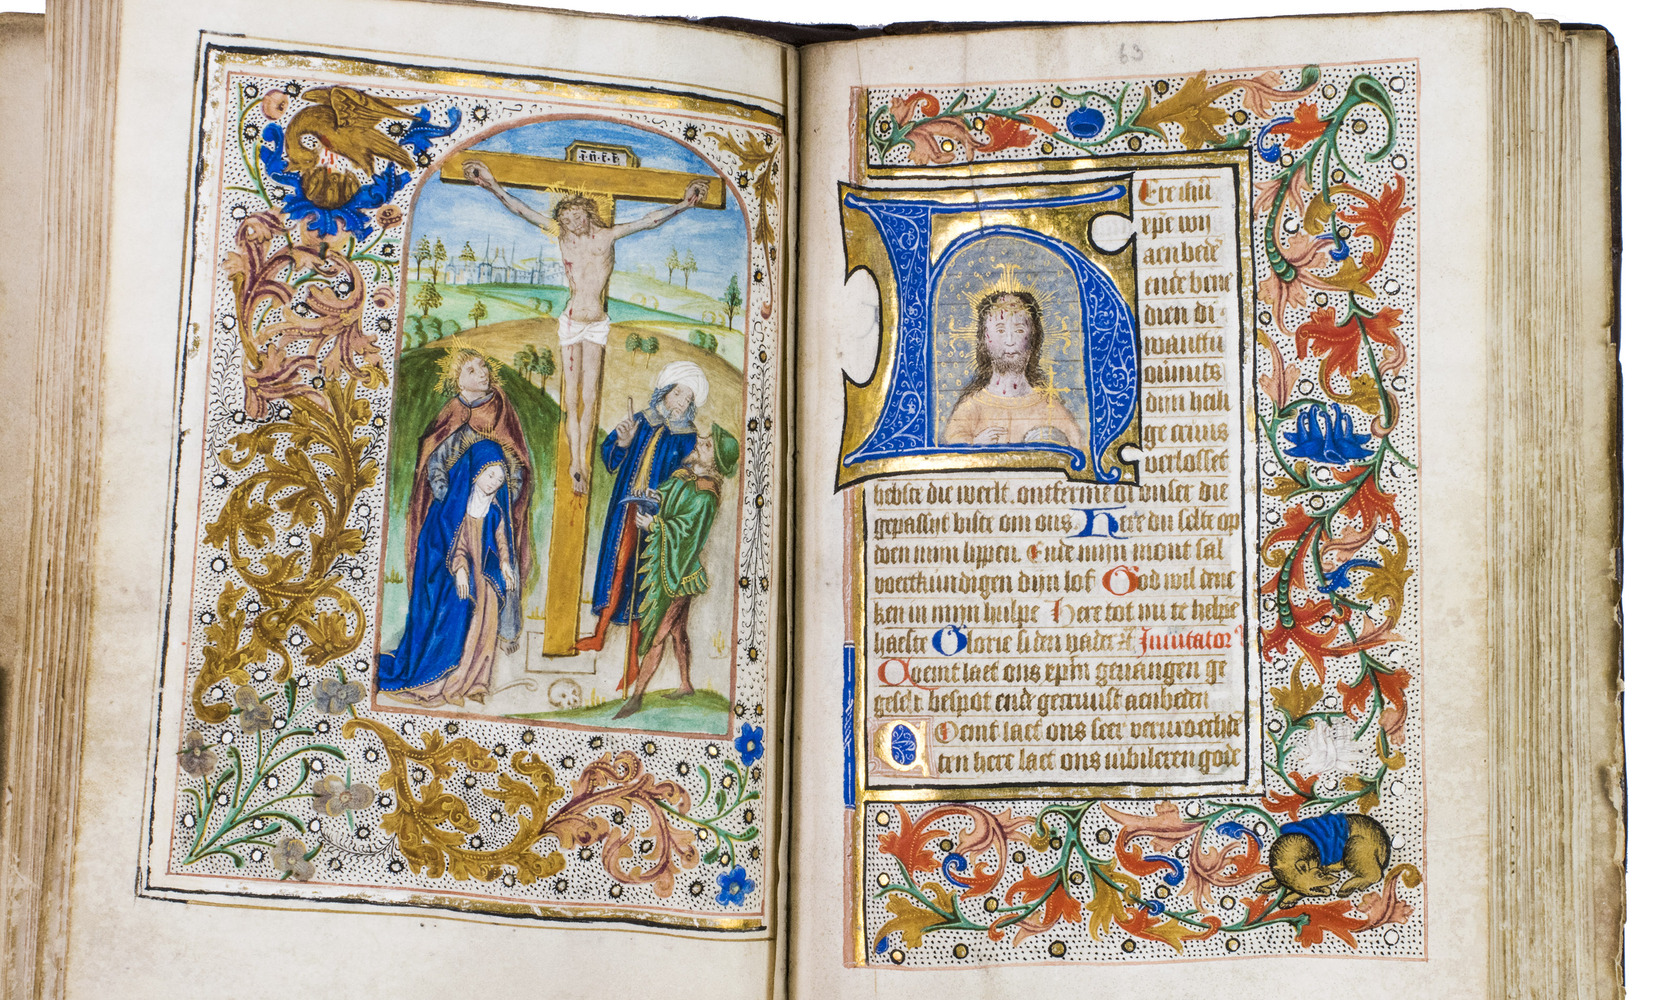 i·n·r·i
63
H Ere ihu
xpe wij
aen bede
ende bene
dien di
wantu
oumits
dijn heili
ge cruus
verlosset
hebste die werlt. ontferme di onser die
gepassijt biste om ons. Here du selte op
doen mijn lippen. Ende mijn mont sal
voertkundigen dijn lof God wil denc
ken in mijn hulpe Here tot mi te helpe
haeste Glorie si den vader Inuitator
Coemt laet ons xpm geuangen ge
geselt bespot ende gecruust aenbeden
Coemt laet ons seer verwoechde
ten here laet ons iubileren gode